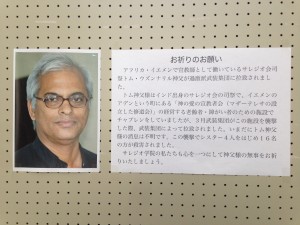 お祈りのお願い
アフリカ・イエメンで宣教師として働いているサレジオ会司
祭トム・ウズンナリル神父が過激派武装集団に拉致されまし
た。
トム神父様はインド出身のサレジオ会の司祭で、イエメンの
アデンという町にある「神の愛の宣教者会(マザーテレサの設
立した修道会)」の経営する老齢者・障がい者のための施設で
チャプレンをしていましたが、3月武装集団がこの施設を襲撃
した際、武装集団によって拉致されました。いまだにトム神父
様の消息は不明です。この襲撃でシスター4人をはじめ16名
の方が殺害されました。
サレジオ学院の私たちも心を一つにして神父様の無事をお祈
りいたしましょう。